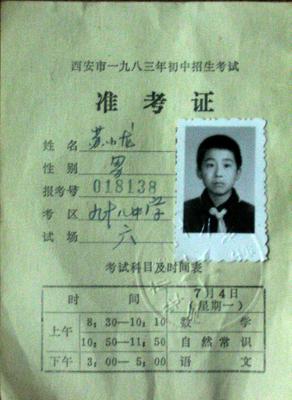 西安市一九八三年初中招生考试
准考证
姓名 苏小龙
性别 男
报考号 018138
考区 九十八中学
试场 六
考试科目及时间表
时间 7月4日
(星期一)
上午 8,30—10,10 数学
10,50—11,50 自然常识
下午 3,00—5,00 语文